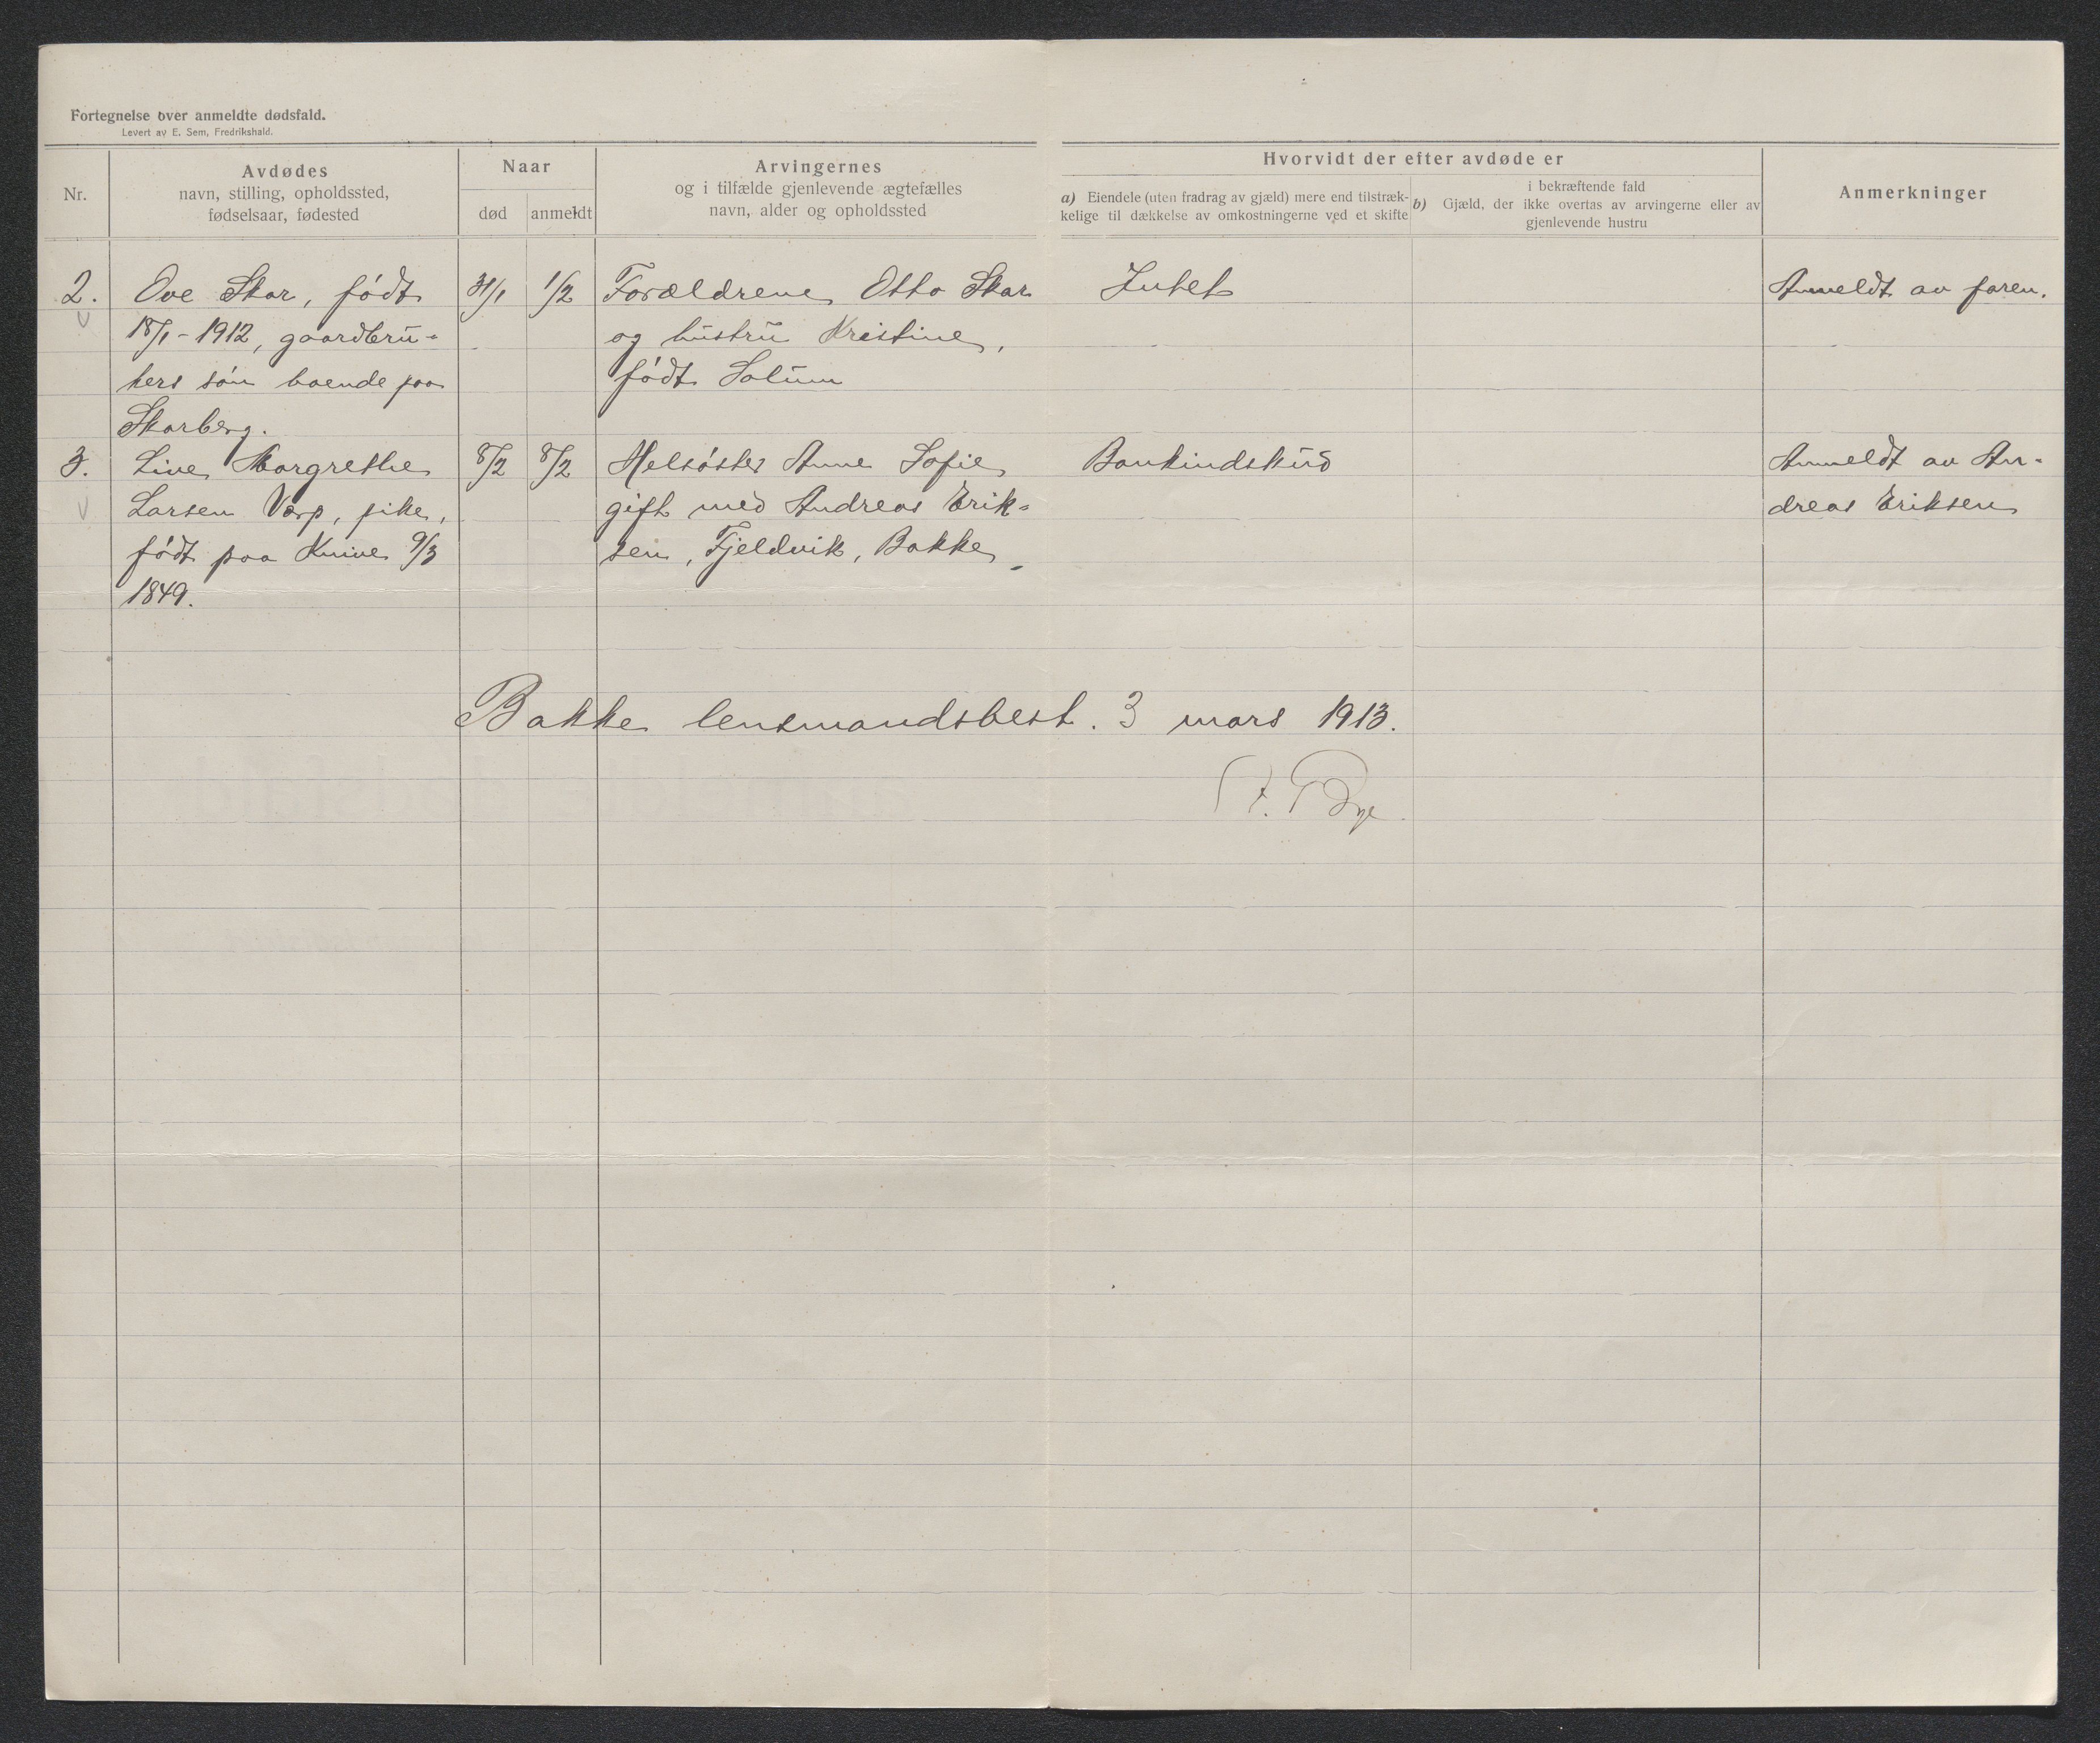 Fortegnelse over anmeldte dødsfald.
Levert av E. Sem, Fredrikshald.
Nr.
Avdødes
navn, stilling, opholdssted,
fødselsaar, fødested
Naar
død
anmeldt
Arvingernes
og i tilfælde gjenlevende ægtefælles
navn, alder og opholdssted
Hvorvidt der efter avdøde er
a) Eiendele (uten fradrag av gjæld) mere end tilstræk-
kelige til dækkelse av omkostningerne ved et skifte
i bekræftende fald
b) Gjæld, der ikke overtas av arvingerne eller av
gjenlevende hustru
Anmerkninger
2.
Ove Skar, født
18/1 - 1912, gaardbru-
kers søn boende paa
Skarberg.
31/1
1/2
Forældrene Otto Skar
og hustru Kristine,
født Solum
Intet
Anmeldt av faren.
3.
Line Margrethe
Larsen Varp, pike,
født paa Knive 9/3
1849.
8/2
8/2
Helsøster Anne Sofie
gift med Andreas Erik-
sen, Fjeldvik, Bakke
Bankindskud
Anmeldt av An-
dreas Eriksen
Bakke lensmandsbest. 3 mars 1913.